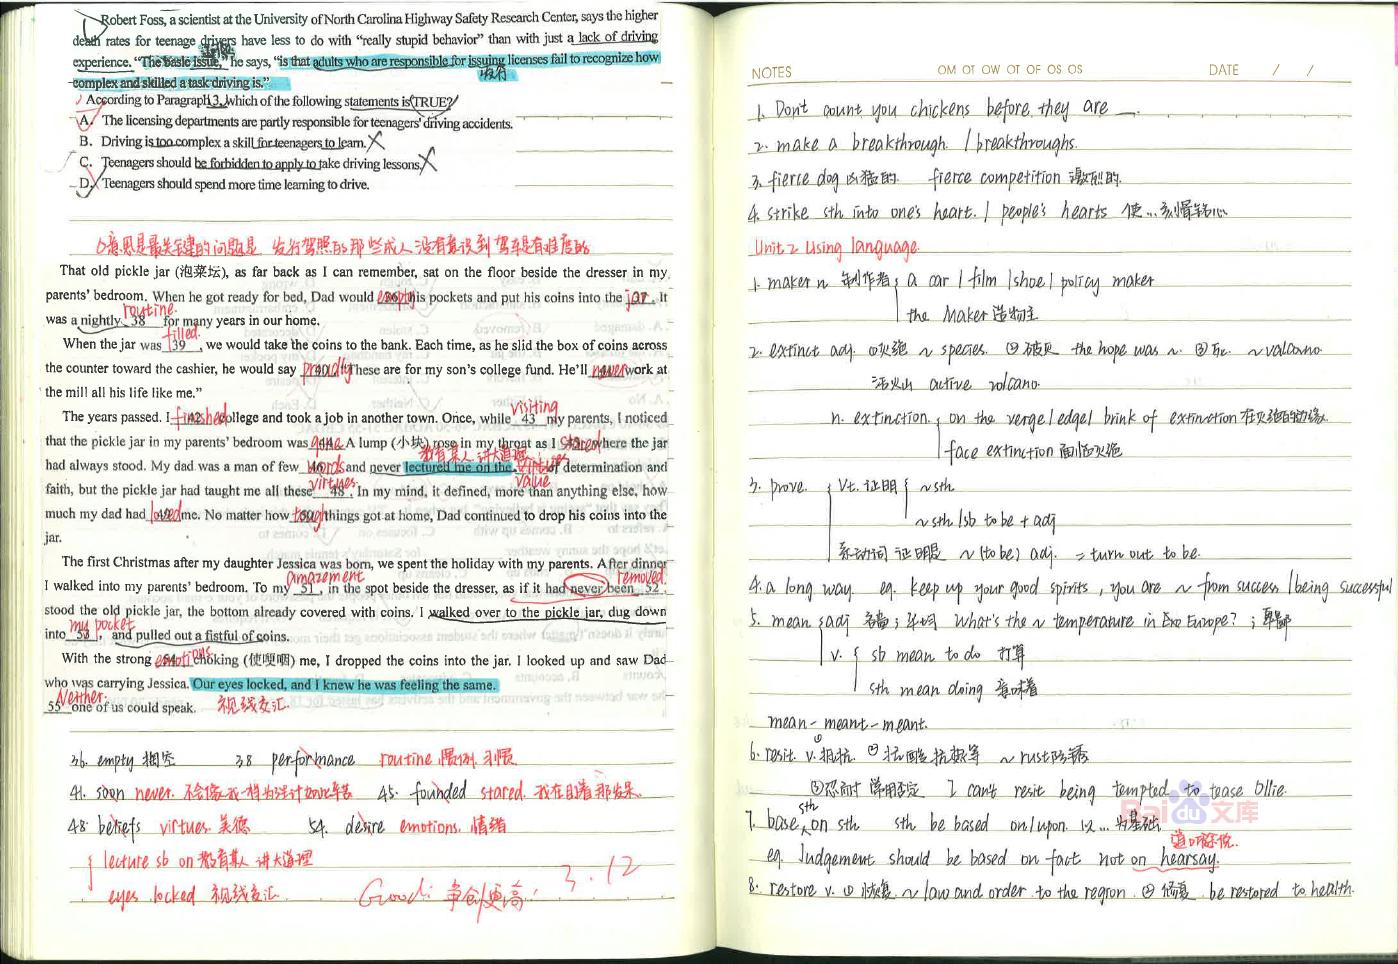 Robert Foss, a scientist at the University of North Carolina Highway Safety Research Center, says the higher
death rates for teenage drivers have less to do with “really stupid behavior” than with just a lack of driving
experience. “The basic issue,” he says, “is that adults who are responsible for issuing licenses fail to recognize how
complex and skilled a task driving is.”
According to Paragraph 3, which of the following statements is TRUE?
A. The licensing departments are partly responsible for teenagers' driving accidents.
B. Driving is too complex a skill for teenagers to learn.
C. Teenagers should be forbidden to apply to take driving lessons.
D. Teenagers should spend more time learning to drive.
意思是最关键的问题是 发行驾照的那些成人没有意识到驾车是有难度的
That old pickle jar (泡菜坛), as far back as I can remember, sat on the floor beside the dresser in my
parents' bedroom. When he got ready for bed, Dad would 36 empty his pockets and put his coins into the 37 jar. It
routine
was a nightly 38 for many years in our home.
filled
When the jar was 39, we would take the coins to the bank. Each time, as he slid the box of coins across
the counter toward the cashier, he would say proudly “These are for my son's college fund. He'll never work at
the mill all his life like me.”
visiting
The years passed. I 42 finished college and took a job in another town. Once, while 43 my parents, I noticed
that the pickle jar in my parents' bedroom was gone. A lump (小块) rose in my throat as I stared where the jar
教育某人 讲大道理
had always stood. My dad was a man of few words and never lectured me on the virtues of determination and
virtues value
faith, but the pickle jar had taught me all these 48. In my mind, it defined, more than anything else, how
much my dad had loved me. No matter how tough things got at home, Dad continued to drop his coins into the
jar.
The first Christmas after my daughter Jessica was born, we spent the holiday with my parents. After dinner
amazement removed
I walked into my parents' bedroom. To my 51, in the spot beside the dresser, as if it had never been 52,
stood the old pickle jar, the bottom already covered with coins. I walked over to the pickle jar, dug down
my pocket
into 53, and pulled out a fistful of coins.
With the strong emotions choking (使哽咽) me, I dropped the coins into the jar. I looked up and saw Dad
who was carrying Jessica. Our eyes locked, and I knew he was feeling the same.
Neither
55 one of us could speak. 视线交汇
36. empty 掏空 38 performance routine 惯例 习惯
41. soon never. 45. founded stared.
48. beliefs virtues. 美德 54. desire emotions. 情绪
lecture sb on 教育某人 讲大道理
eyes locked 视线交汇
Good! 争创更高! 3.12
NOTES OM OT OW OT OF OS OS DATE / /
1. Don't count you chickens before they are —.
2. make a breakthrough / breakthroughs.
3. fierce dog 凶猛的. fierce competition 激烈的.
4. strike sth into one's heart. / people's hearts 使...刻骨铭心
Unit 2 Using language.
1. maker n 制作者; a car / film / shoe / policy maker
the Maker 造物主
2. extinct adj. ①灭绝 ~ species. ②破灭 the hope was ~. ③死 ~ valcano.
活火山 active volcano.
n. extinction. on the verge / edge / brink of extinction 在灭绝的边缘
face extinction 面临灭绝
3. prove. vt. 证明 ~ sth
~ sth / sb to be + adj
系动词 证明是 ~ (to be) adj. = turn out to be.
4. a long way. eg. keep up your good spirits, you are ~ from success / being successful
5. mean adj 吝啬; 平均 What's the ~ temperature in Europe? ; 卑鄙
v. sb mean to do 打算
sth mean doing 意味着
mean - meant - meant.
6. resit. v. ①抵抗. ②抗酸 抗热等 ~ rust 防锈
③忍耐 常用否定 I can't resit being tempted to tease Ollie.
7. base sth on sth sth be based on / upon. 以...为基础
道听途说.
eg. Judgement should be based on fact not on hearsay.
8. restore v. ① 恢复 ~ law and order to the region. ② 修复 be restored to health.
Baidu文库